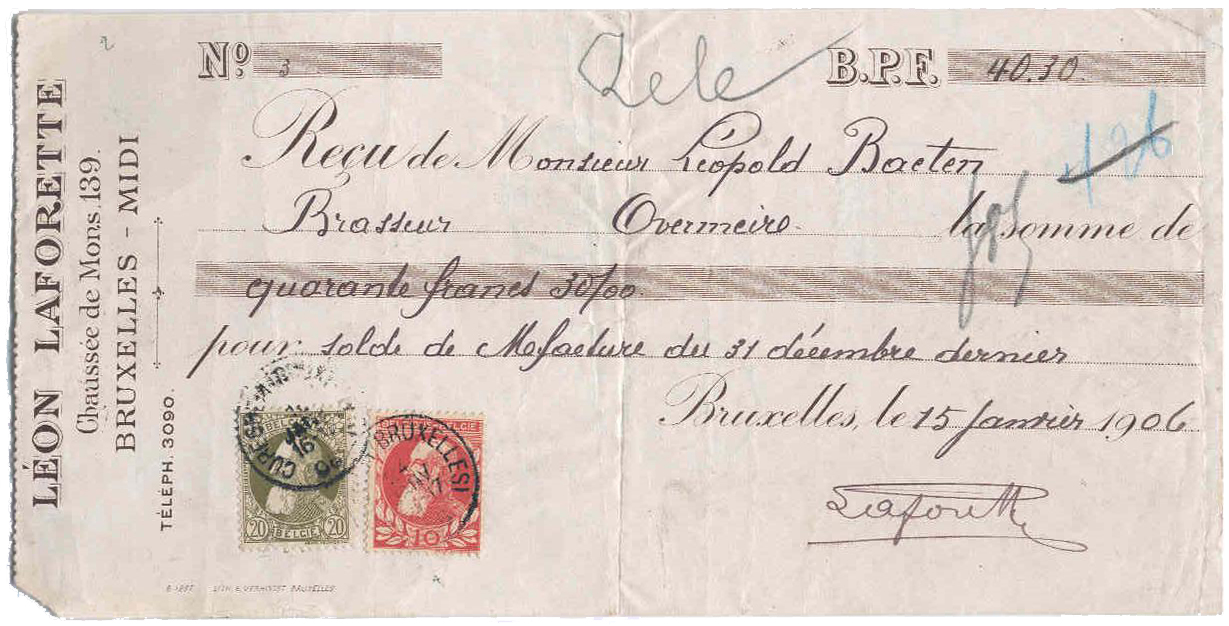 LÉON LAFORETTE
Chaussée de Mons 139.
BRUXELLES - MIDI
TELEPH. 3090.
Nº 3
Zele
B.P.F. 40.30
126
Reçu de Monsieur Léopold Baeten
Brasseur Overmeire la somme de
quarante francs 30/00
pour solde de M/facture du 31 décembre dernier
Bruxelles, le 15 Janvier 1906
Laforette
BELGIQUE
20 20
BELGIË
BRUXELLES 1
10
LITH. E. VERHULST BRUXELLES